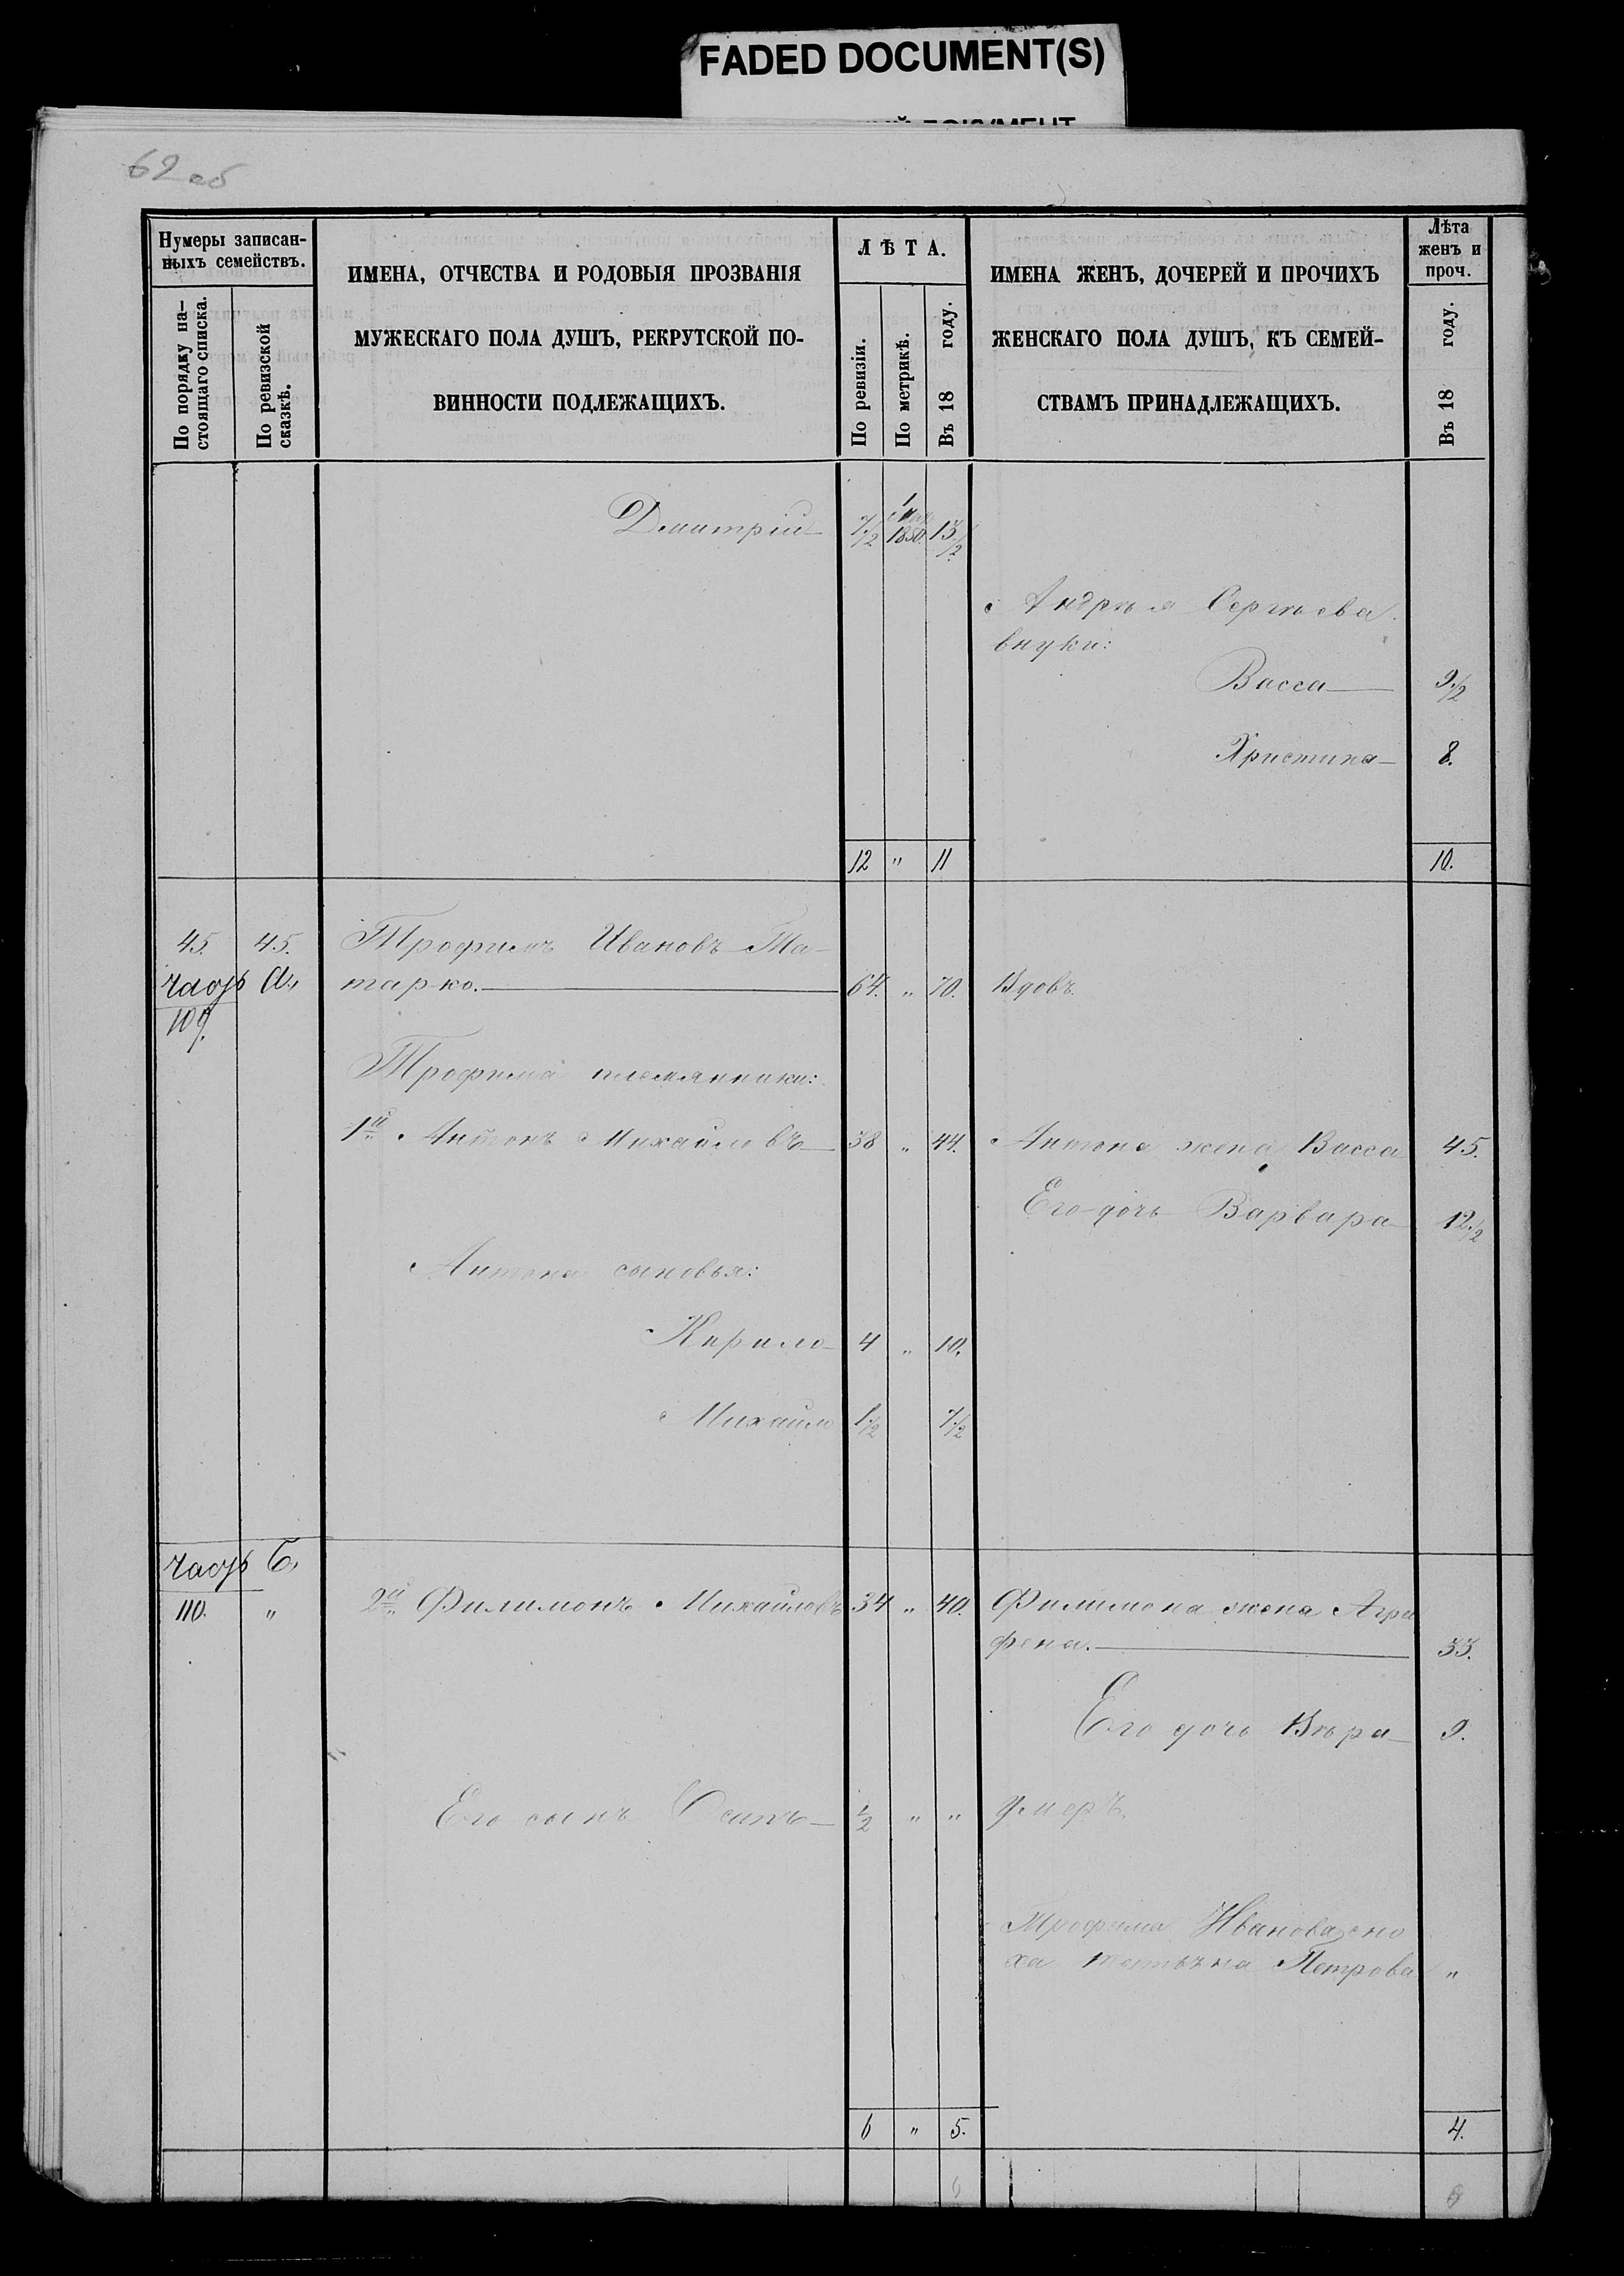 FADED DOCUMENT(S)
62 об
Нумеры записан-
ныхъ семействъ.
По порядку на-
стоящаго списка.
По ревизской
сказкѣ.
ИМЕНА, ОТЧЕСТВА И РОДОВЫЯ ПРОЗВАНІЯ
МУЖЕСКАГО ПОЛА ДУШЪ, РЕКРУТСКОЙ ПО-
ВИННОСТИ ПОДЛЕЖАЩИХЪ.
ЛѢТА.
По ревизіи.
По метрикѣ.
Въ 18 году.
ИМЕНА ЖЕНЪ, ДОЧЕРЕЙ И ПРОЧИХЪ
ЖЕНСКАГО ПОЛА ДУШЪ, КЪ СЕМЕЙ-
СТВАМЪ ПРИНАДЛЕЖАЩИХЪ.
Лѣта
женъ и
проч.
Въ 18 году.
Дмитрій 7 1/2 1850. 13 1/2
Андрѣя Сергѣева
внуки:
Васса 9 1/2
Христина 8.
12 " 11 10.
45. 45. Трофимъ Ивановъ Та-
часть а, тарко. 64. " 70. Вдовъ.
109.
Трофима племянники:
1й Антонъ Михайловъ 38 " 44. Антона жена Васса 45.
Его дочь Варвара 12 1/2
Антона сыновья:
Кирило 4 " 10.
Михайло 1 1/2 7 1/2
часть б,
110. " 2й Филимонъ Михайловъ 34 " 40. Филимона жена Агри
фена. 33.
Его дочь Вѣра 9.
Его сынъ Осипъ 1/2 " " умеръ.
Трофима Иванова сно
ха Петрова "
6 " 5. 4.